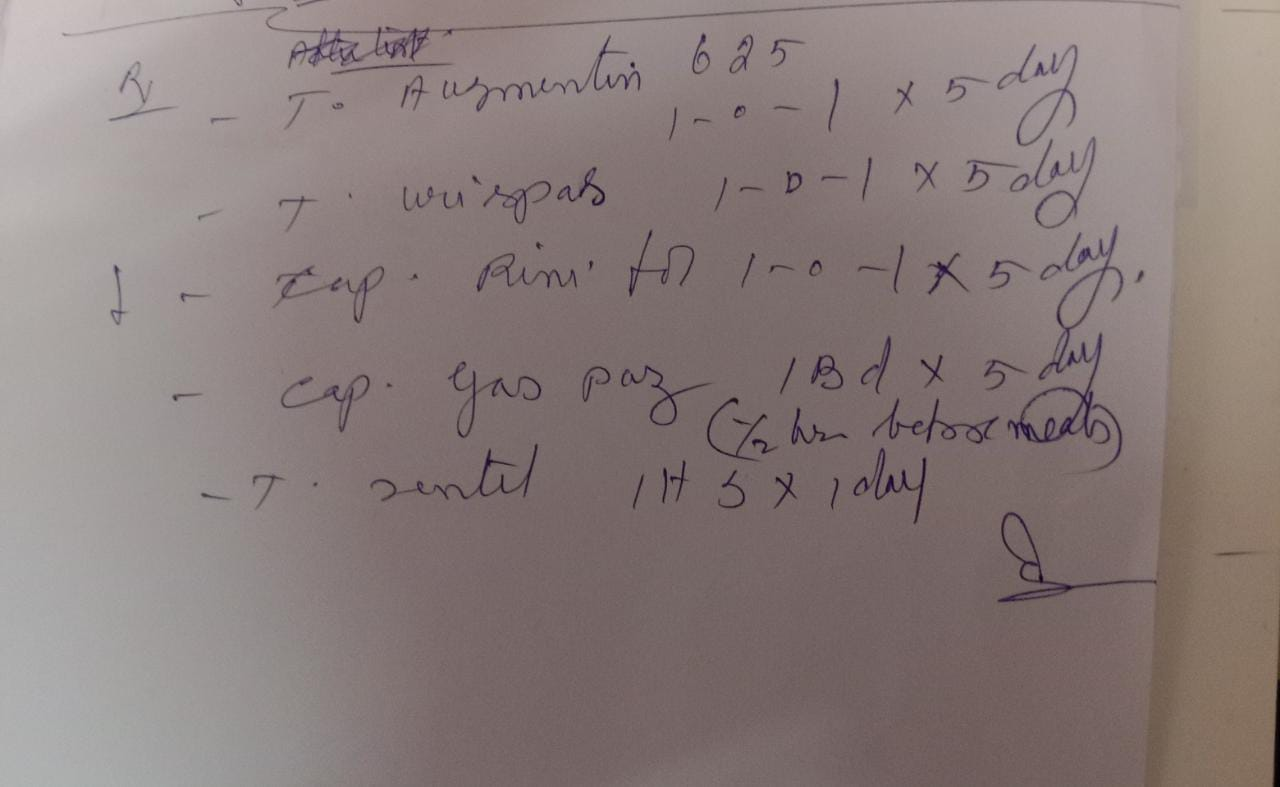 Rx
- T. Augmentin 625
1-0-1 x 5 day
- T. 1-0-1 x 5 day
- Cap. 1-0-1 x 5 day.
- Cap. Gas paz 1 Bd x 5 day
(1/2 hr before meals)
- T. zentel 1 HS x 1 day